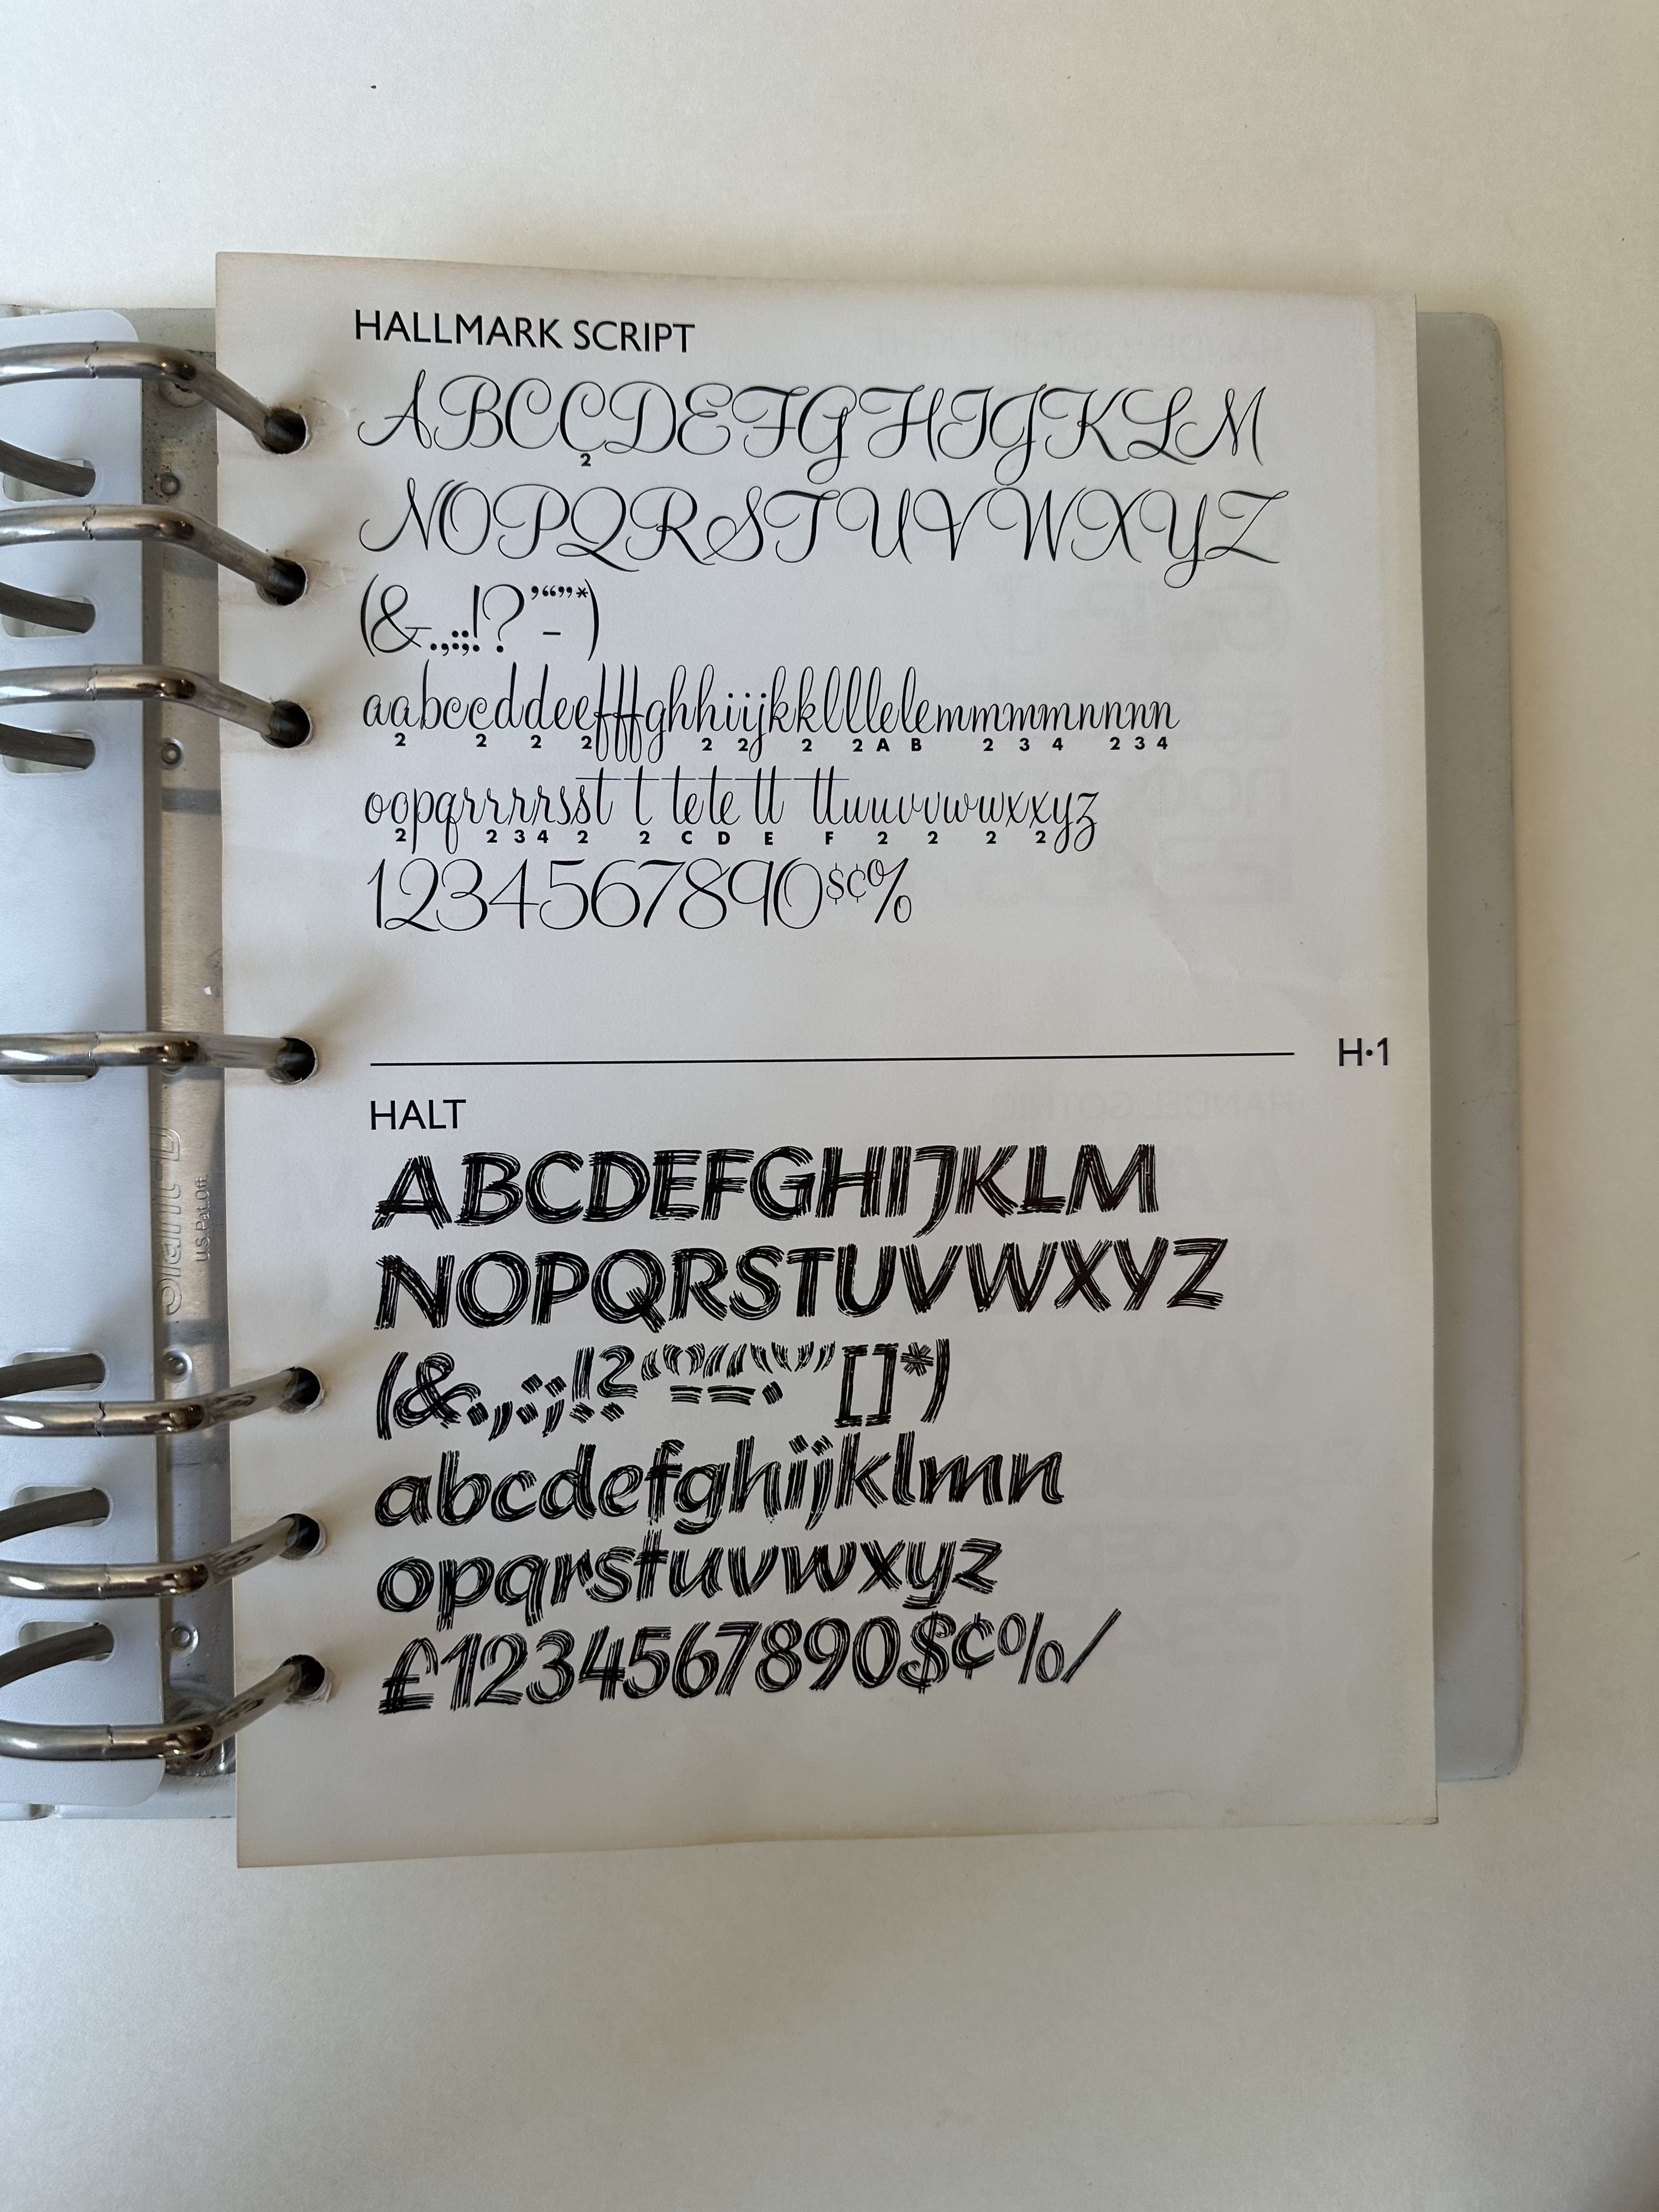 HALLMARK SCRIPT
ABCÇDEFGHIJKLM
2
NOPQRSTUVWXYZ
(&.,:;!?'“”*-)
aabccddeefffghhiijkklllelemmmmnnnn
2 2 2 2 2 2 2 2 A B 2 3 4 2 3 4
oopqrrrrsst t tete tt ttuuvvwwxxyz
2 2 3 4 2 2 C D E F 2 2 2 2
1234567890$¢%
H·1
HALT
ABCDEFGHIJKLM
NOPQRSTUVWXYZ
abcdefghijklmn
opqrstuvwxyz
£1234567890$¢%/
US Pat. Off